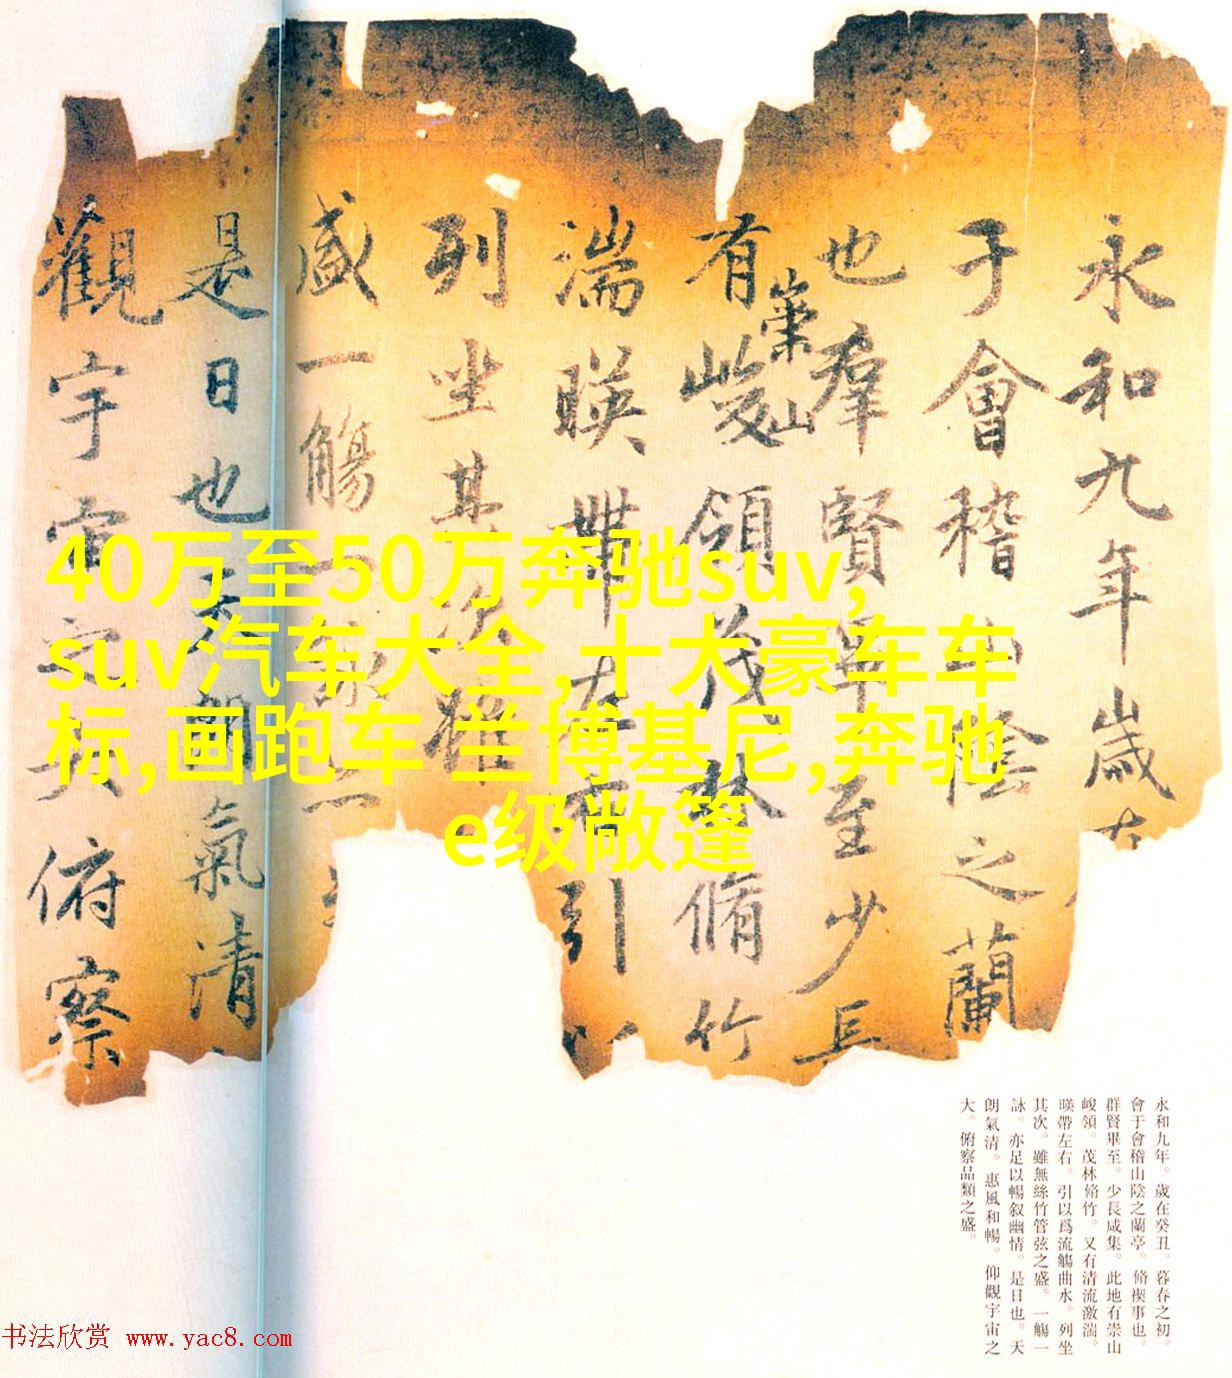 永和九年歲在
于會稽山陰之蘭
也羣賢畢至少長
有崇山峻領茂林脩竹
湍暎帶左右引以
列坐其次雖
盛一觴一詠亦
是日也天朗氣清
觀宇宙之大俯察
40万至50万奔驰suv,
suv汽车大全,十大豪车车
标,画跑车 兰博基尼,奔驰
e级敞篷
永和九年。歲在癸丑。暮春之初。
會于會稽山陰之蘭亭。脩禊事也。
群賢畢至。少長咸集。此地有崇山
峻領。茂林脩竹。又有清流激湍。
暎帶左右。引以爲流觴曲水。列坐
其次。雖無絲竹管弦之盛。一觴一
詠。亦足以暢叙幽情。是日也。天
朗氣清。惠風和暢。仰觀宇宙之
大。俯察品類之盛。
书法欣赏 www.yac8.com